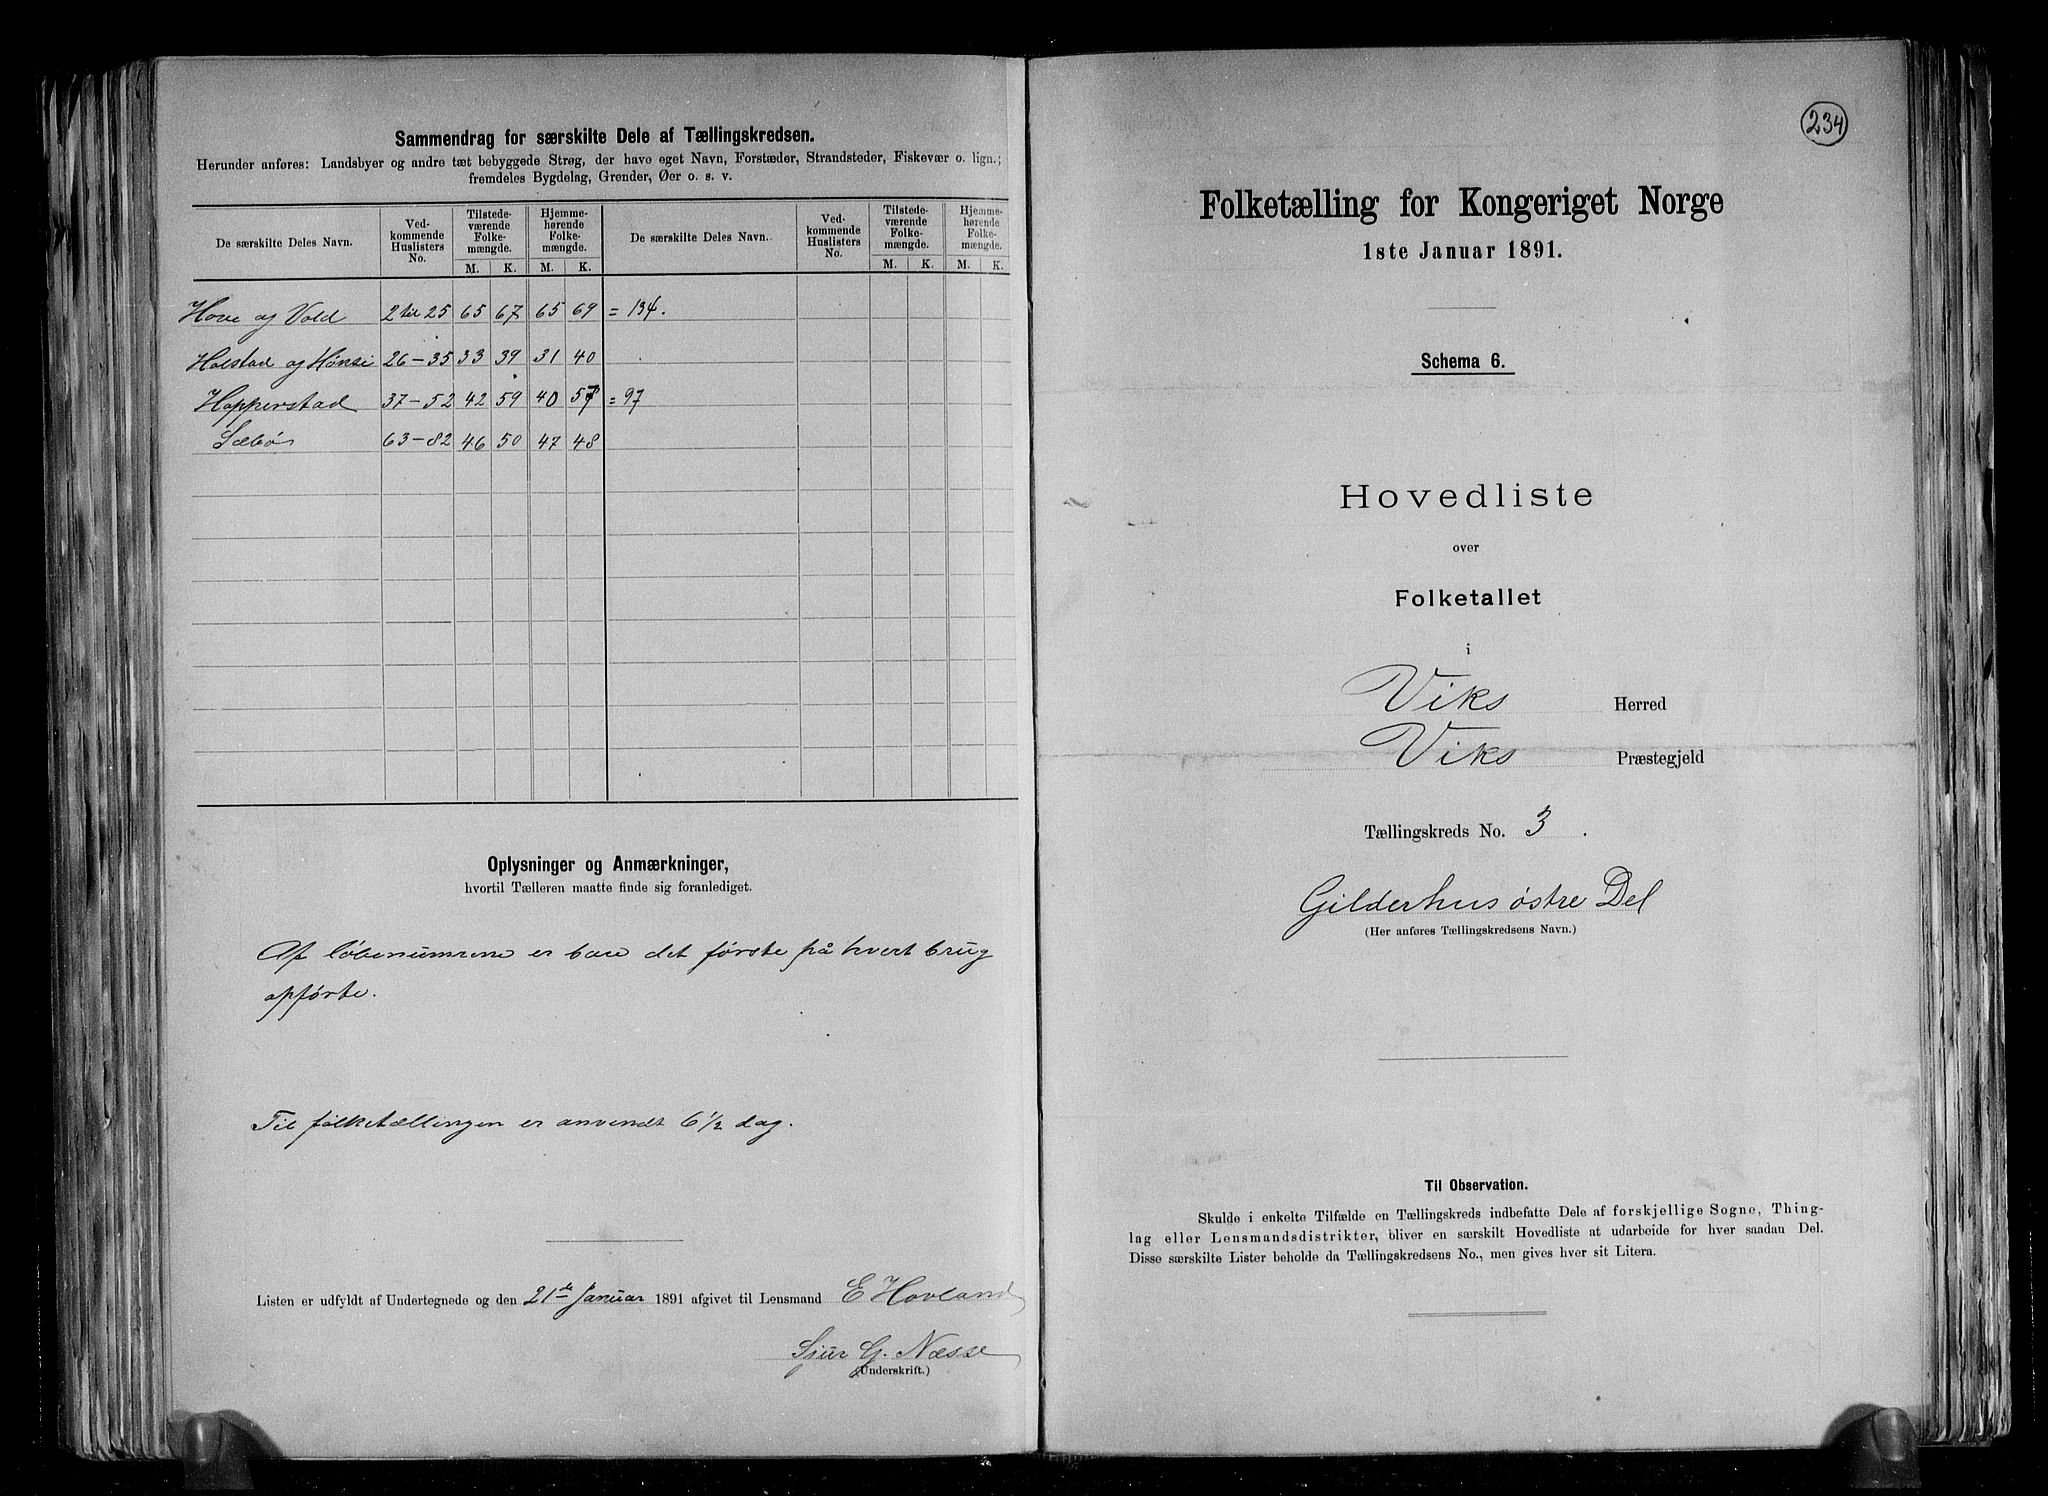 Sammendrag for særskilte Dele af Tællingskredsen.
Herunder anføres: Landsbyer og andre tæt bebyggede Strøg, der have eget Navn, Forstæder, Strandsteder, Fiskevær o. lign.;
fremdeles Bygdelag, Grender, Øer o. s. v.
De særskilte Deles Navn. Ved-kommende Huslisters No. Tilstede-værende Folke-mængde. Hjemme-hørende Folke-mængde. De særskilte Deles Navn. Ved-kommende Huslisters No. Tilstede-værende Folke-mængde. Hjemme-hørende Folke-mængde.
M. K. M. K. M. K. M. K.
Hove og Vold 2 til 25 65 67 65 69 = 134.
Holstad og Hønsi 26-35 33 39 31 40
Hopperstad 37-52 42 59 40 57 = 97
Sæbø 63-82 46 50 47 48
Oplysninger og Anmærkninger,
hvortil Tælleren maatte finde sig foranlediget.
Af løbenumrene er bare det første på hvert brug
opførte.
Til folketællingen er anvendt 6 1/2 dag.
Listen er udfyldt af Undertegnede og den 21de Januar 1891 afgivet til Lensmand E Hovland
Sjur G. Næsse
(Underskrift.)
234
Folketælling for Kongeriget Norge
1ste Januar 1891.
Schema 6.
Hovedliste
over
Folketallet
i
Viks Herred
Viks Præstegjeld
Tællingskreds No. 3.
Gilderhus østre Del
(Her anføres Tællingskredsens Navn.)
Til Observation.
Skulde i enkelte Tilfælde en Tællingskreds indbefatte Dele af forskjellige Sogne, Thing-
lag eller Lensmandsdistrikter, bliver en særskilt Hovedliste at udarbeide for hver saadan Del.
Disse særskilte Lister beholde da Tællingskredsens No., men gives hver sit Litera.